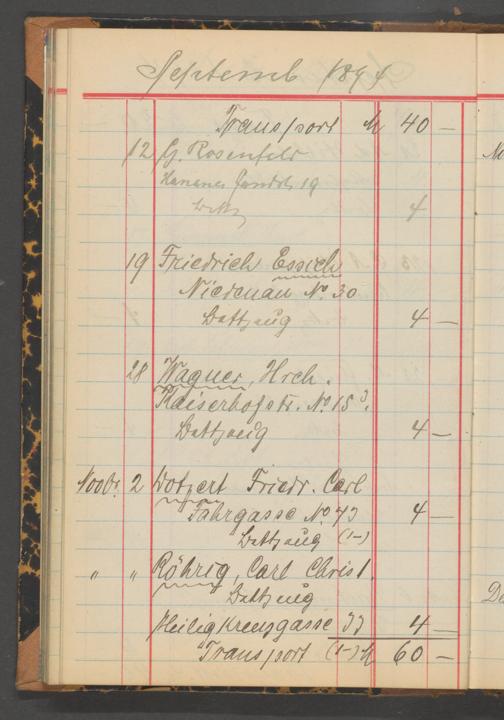 Septemb 1894
Transport M 40 —
12 G. Rosenfeld
Hanauer Landstr 19
4
19 Friedrich Essich
Niedenau No. 30
Bettzeug 4 —
28 Wagner, Hrch.
Kaiserhofstr. No 15
Bettzeug 4 —
Novbr. 2 Dotzert Friedr. Carl
Fahrgasse No 43 4 —
Bettzeug (1—)
" " Röhrig, Carl Christ.
Bettzeug
Heiligkreuzgasse 4 —
Transport (1—) M 60 —